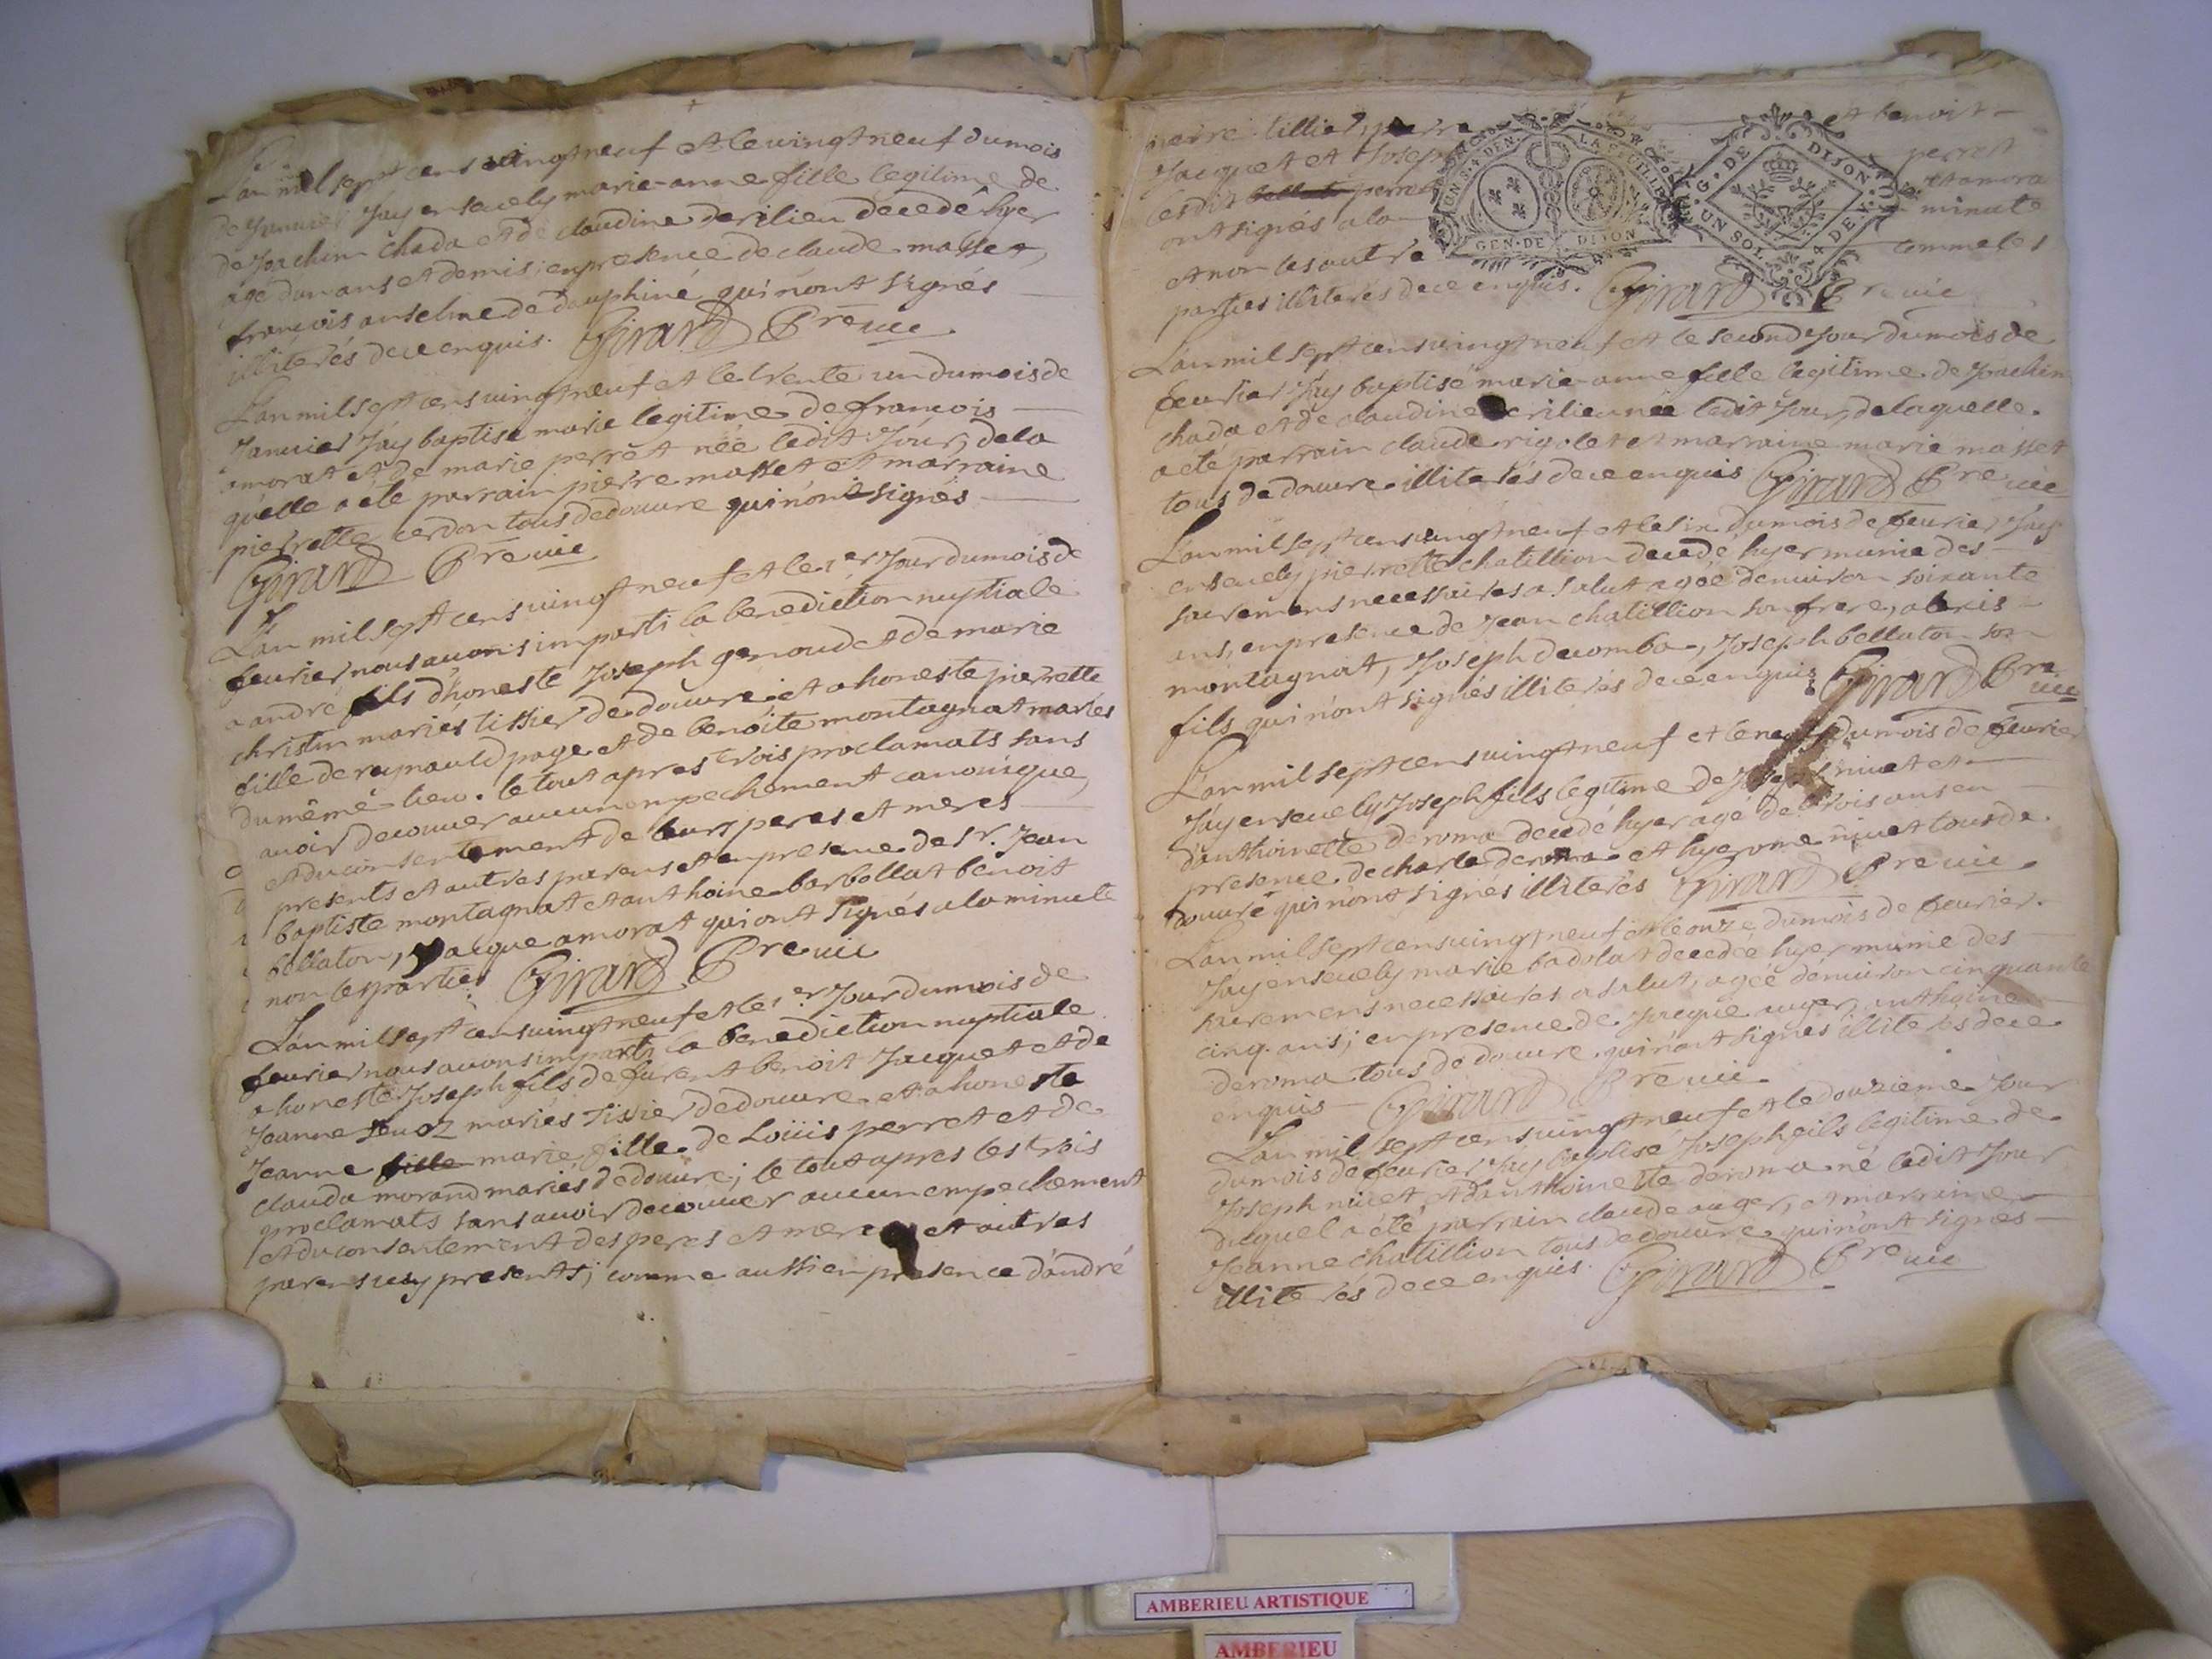 L'an mil sept cens vingt neuf et le vingt neuf du mois
de Janvier J'ay ensevely marie anne fille legitime de
de Joachin chada et de claudine derilieu decedé hyer
agé dun ans et demis, en presence de claude masset,
françois anselme de dauphiné qui n'ont signés
illiterés de ce enquis. Girard Pre vic.
L'an mil sept cens vingt neuf et le trente un du mois de
Janvier J'ay baptisé marie legitime de françois
amorat et de marie perret née ledit Jour, de la
quelle a eté parrain pierre masset et marraine
pierrette cerdon tous de douvre qui n'ont signés
Girard Pre vic
L'an mil sept cens vingt neuf et le 1er Jour du mois de
fevrier nous avons imparti la benediction nuptiale
a andré fils d'honeste Joseph genoud et de marie
christin mariés tissier de douvre et a honeste pierrette
fille de reynauld page et de benoite montagnat mariés
du même lieu. le tout apres trois proclamats sans
avoir decouver aucun empechement canonique,
et du consentement de leurs peres et meres
presents et autres parens et en presence de Sr. Jean
baptiste montagnat et anthoine barbollat benoit
bollaton, Jacque amorat qui ont signés a la minute
non les parties Girard Pre vic
L'an mil sept cens vingt neuf et le 1er Jour du mois de
fevrier nous avons imparti la benediction nuptiale
a honeste Joseph fils de furent benoit Jacquet et de
Jeanne mariés tissier de douvre et a honeste
Jeanne fille marie fille de Loüis perret et de
clauda morand mariés de douvre; le tout apres les trois
proclamats sans avoir decouver aucun empechement
et du consentement des peres et meres et autres
parens icy presents; comme aussi en presence d'andré
pierre tilliet et benoit
Jacquet et Joseph perret
lesdit perret et amora
ont signés a la minute
et non les autre comme les
parties illiterés de ce enquis. Girard Pre vic
L'an mil sept cens vingt neuf et le second Jour du mois de
fevrier J'ay baptisé marie anne fille legitime de Joachin
chada et de claudine derilieu née ledit Jour, de laquelle
a eté parrain claude rigolet et marraine marie masset
tous de douvre illiterés de ce enquis Girard Pre vic
L'an mil sept cens vingt neuf et le six du mois de fevrier J'ay
ensevely pierrette chatillion decedé hyer munie des
sacremens necessaires a salut agée denviron soixante
ans, en presence de Jean chatillion son frere, alexis
montagnat, Joseph decomba, Joseph bollaton son
fils qui n'ont signés illiterés de ce enquis Girard Pre vic
L'an mil sept cens vingt neuf et le neuf du mois de fevrier
J'ay ensevely Joseph fils legitime de Joseph nivet et
d'anthoinette deroma decedé hyer agé de trois ans en
presence de charle deroma et hyerome nivet tous de
douvre qui n'ont signés illiterés Girard Pre vic
L'an mil sept cens vingt neuf et le onze du mois de fevrier
J'ay ensevely marie badolat decedée hyer munie des
sacremens necessaires a salut, agée denviron cinquante
cinq ans; en presence de Jacque auger, anthoine
deroma tous de douvre qui n'ont signés illiterés de ce
enquis Girard Pre vic
L'an mil sept cens vingt neuf et le douzieme Jour
du mois de fevrier J'ay baptisé Joseph fils legitime de
Joseph nivet, et d'anthoinette deroma né ledit Jour
duquel a été parrain claude auger, et marraine
Jeanne chatillion tous de douvre qui n'ont signés
illiterés de ce enquis. Girard Pre vic
UN S. 4 DEN. LA FEUILLE
GEN. DE DIJON
G. DE DIJON
UN SOL 4 DE.
AMBERIEU ARTISTIQUE
AMBERIEU